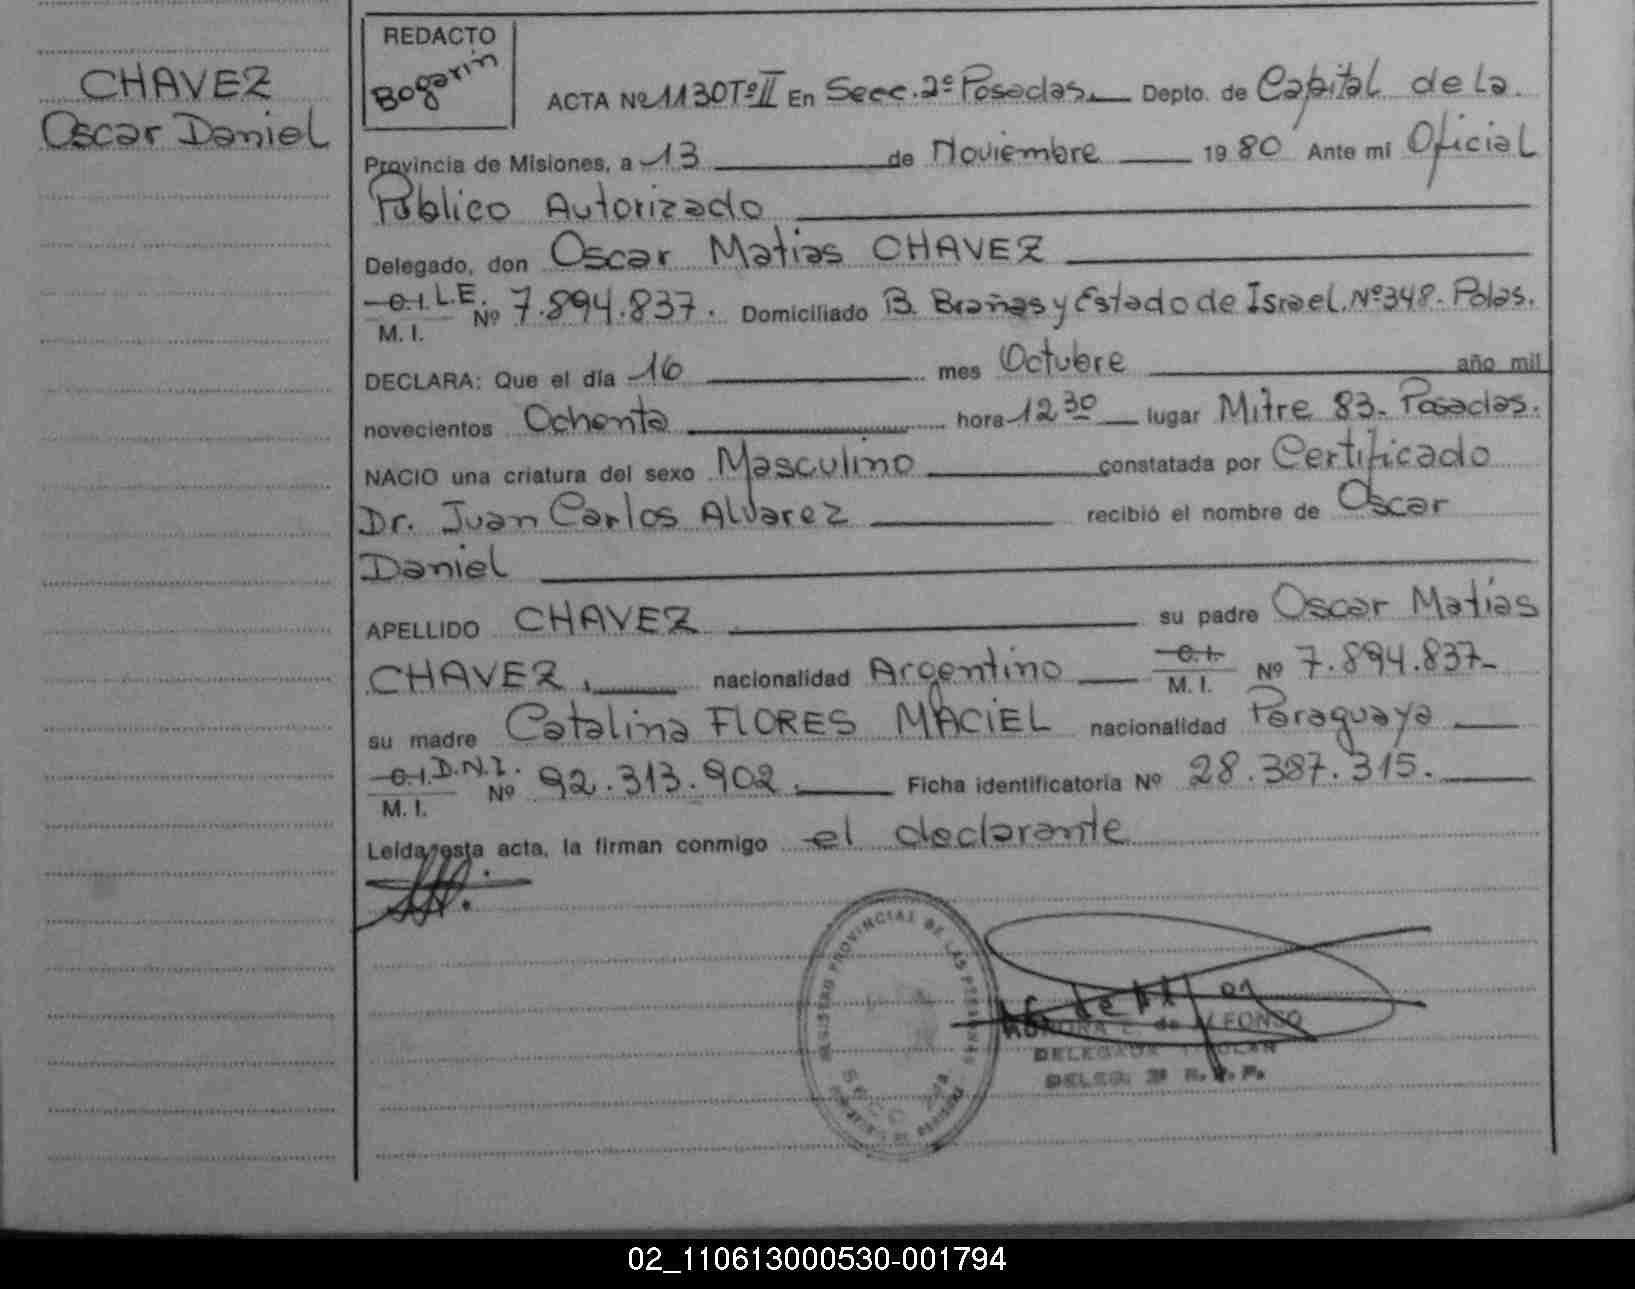 CHAVEZ
Oscar Daniel
REDACTO
Bogarin
ACTA Nº 1130 Tº II En Secc. 2º Posadas. Depto. de Capital de la
Provincia de Misiones, a 13 de Noviembre 19 80 Ante mi Oficial
Público Autorizado
Delegado, don Oscar Matias CHAVEZ
C.I. L.E. Nº 7.894.837. Domiciliado B. Brañas y Estado de Israel. Nº 348. Pdas.
M. I.
DECLARA: Que el día 16 mes Octubre año mil
novecientos Ochenta hora 12 30 lugar Mitre 83. Posadas.
NACIO una criatura del sexo Masculino constatada por Certificado
Dr. Juan Carlos Alvarez recibió el nombre de Oscar
Daniel
APELLIDO CHAVEZ su padre Oscar Matias
CHAVEZ, nacionalidad Argentino C.I. Nº 7.894.837-
M. I.
su madre Catalina FLORES MACIEL nacionalidad Paraguaya
C.I. D.N.I. Nº 92.313.902. Ficha identificatoria Nº 28.387.315.
M. I.
Leída esta acta, la firman conmigo el declarante
REGISTRO PROVINCIAL DE LAS PERSONAS
SECC. 2da
de ALFONSO
DELEGADA TITULAR
DELEG. 2ª R. P. P.
02_110613000530-001794